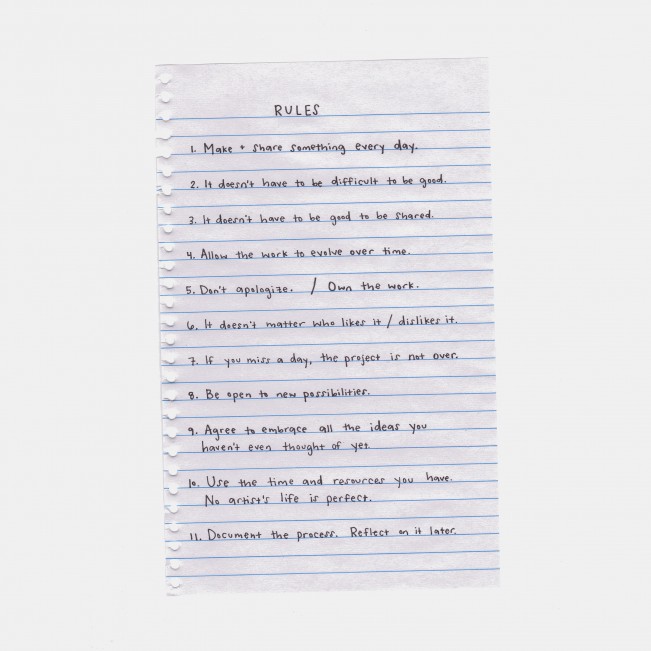 RULES
1. Make + share something every day.
2. It doesn't have to be difficult to be good.
3. It doesn't have to be good to be shared.
4. Allow the work to evolve over time.
5. Don't apologize. / Own the work.
6. It doesn't matter who likes it / dislikes it.
7. If you miss a day, the project is not over.
8. Be open to new possibilities.
9. Agree to embrace all the ideas you
haven't even thought of yet.
10. Use the time and resources you have.
No artist's life is perfect.
11. Document the process. Reflect on it later.